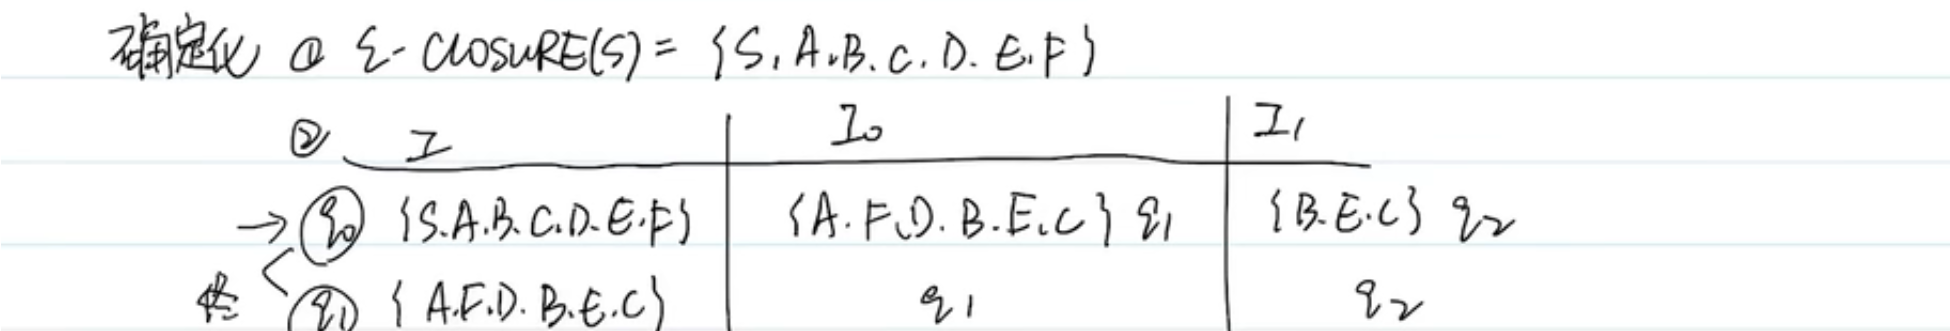 确定化 ① ε-CLOSURE(S) = {S, A, B, C, D, E, F}
② I I₀ I₁
→ q₀ {S.A.B.C.D.E.F} {A.F.D.B.E.C} q₁ {B.E.C} q₂
终 q₁ {A.F.D.B.E.C} q₁ q₂